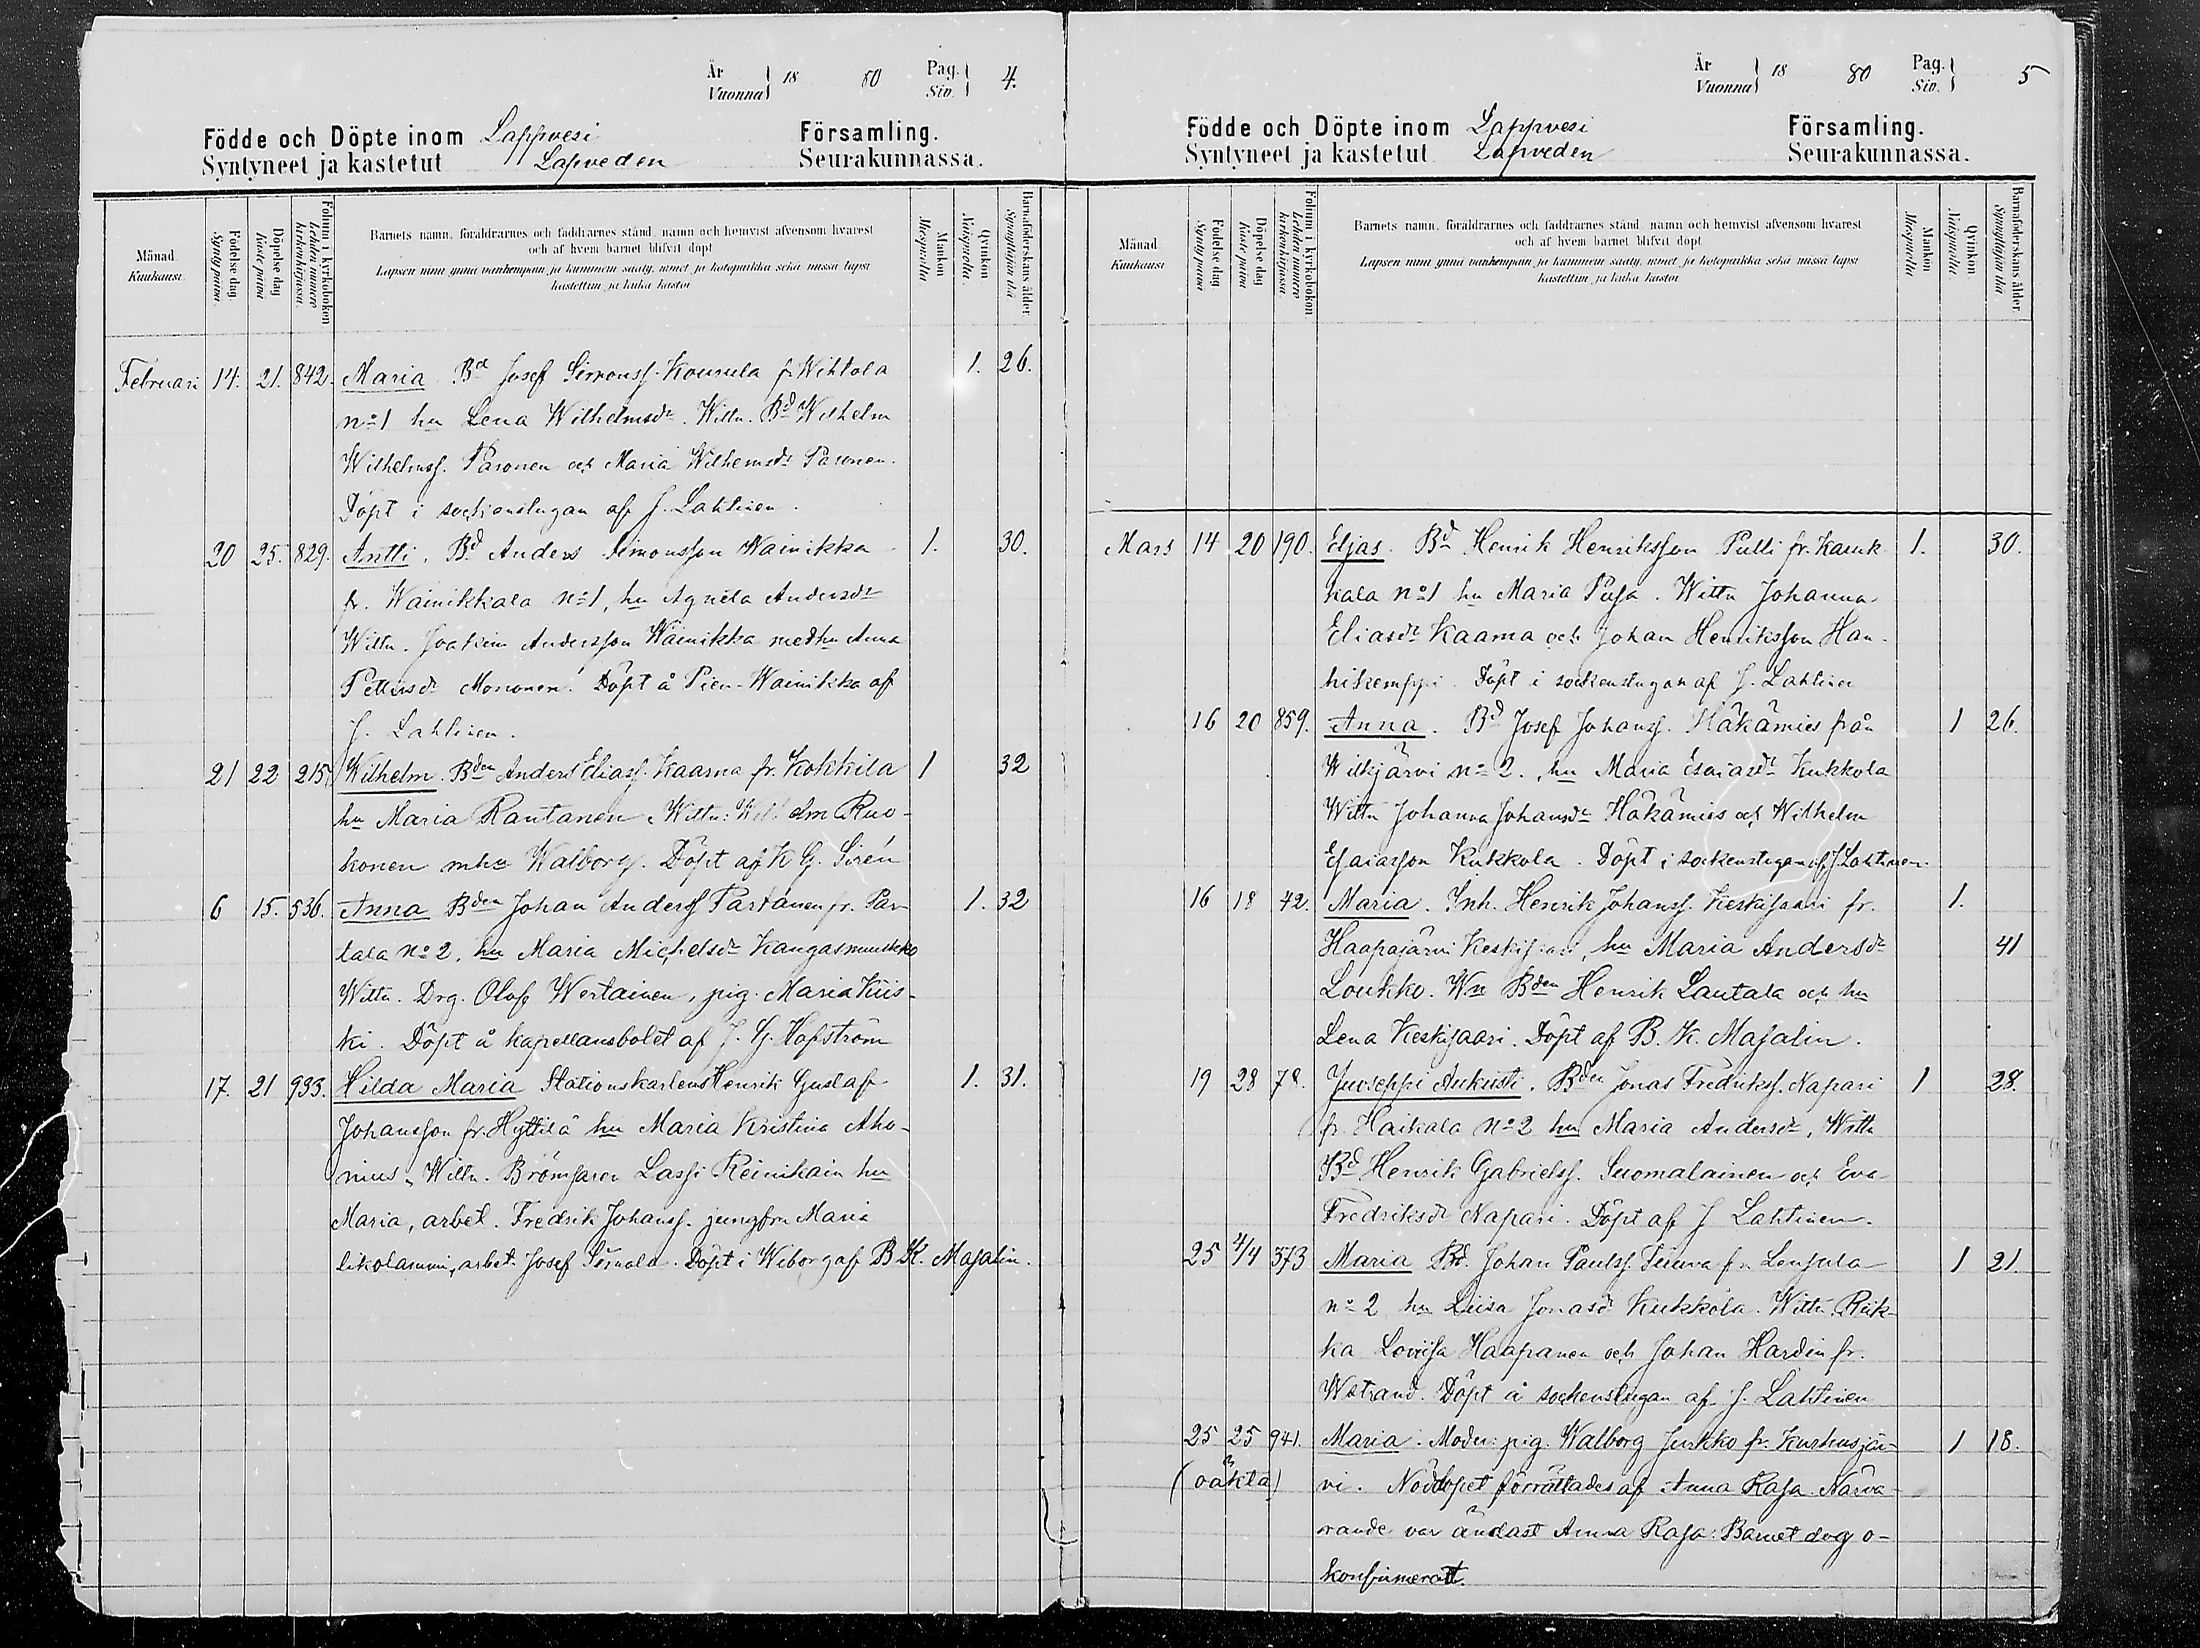 År
Vuonna 18 80 Pag. Siv. 4.
Födde och Döpte inom Lappvesi Församling.
Syntyneet ja kastetut Lapveden Seurakunnassa.
Månad Kuukausi.
Födelse dag. Synty päivä.
Döpelse dag Kaste päivä
Folium i kyrkoboken Lehden numero kirkonkirjassa.
Barnets namn, föräldrarnes och faddrarnes stånd, namn och hemvist äfvensom hvarest
och af hvem barnet blifvit döpt
Lapsen nimi ynnä vanhempain ja kummein sääty, nimet ja kotopaikka sekä missä lapsi
kastettiin ja kuka kastoi
Mankön Miespuolta
Qvinkön. Naispuolta.
Barnaföderskans ålder. Synnyttäjän ikä
Februari 14. 21. 842. Maria. Bd Josef Simonss. Kousula fr Wihtola 1. 26.
no 1 hu Lena Wilhelmsdr. Wittn. Bd Wilhelm
Wilhelmss. Paronen och Maria Wilhemsdr Paronen.
Döpt i sockenstugan af J. Lahtinen.
20 25. 829. Antti. Bd Anders Simonsson Wainikka 1. 30.
fr. Wainikkala no 1, hu Agneta Andersdr
Wittn. Joakim Andersson Wainikka med hu Anna
Pettersdr Mononen. Döpt å Pien-Wainikka af
J. Lahtinen.
21 22 215. Wilhelm. Bden Anders Eliass. Kaarna fr. Kokkila 1 32
hu Maria Rautanen Wittn: Wilhelm Ruo-
konen mhu Walborg. Döpt af K G. Sirén
6 15. 536. Anna Bden Johan Anderss Partanen fr. Par- 1. 32
tala no 2, hu Maria Michelsdr Kangasmuukko
Wittn. Drg. Olof Wertainen, pig. Maria Kiis-
ki. Döpt å kapellansbolet af J. G. Hofström
17. 21 933. Hilda Maria Stationskarlens Henrik Gustaf 1. 31.
Johansson fr. Hyttilä hu Maria Kristina Aho-
nius, Wittn. Brömsaren Lassi Reinikain hu
Maria, arbet. Fredrik Johanss. jungfru Maria
Likolammi, arbet. Josef Simola. Döpt i Wiborg af B K. Majalin.
År
Vuonna 18 80 Pag. Siv. 5
Födde och Döpte inom Lappvesi Församling.
Syntyneet ja kastetut Lapveden Seurakunnassa.
Månad Kuukausi
Födelse dag. Synty päivä
Döpelse dag Kaste päivä
Folium i kyrkoboken Lehden numero kirkonkirjassa
Barnets namn, föräldrarnes och faddrarnes stånd, namn och hemvist äfvensom hvarest
och af hvem barnet blifvit döpt
Lapsen nimi ynnä vanhempain ja kummein sääty, nimet ja kotopaikka sekä missä lapsi
kastettiin ja kuka kastoi
Mankön Miespuolta
Qvinkön. Naispuolta.
Barnaföderskans ålder. Synnyttäjän ikä
Mars 14 20 190. Eljas. Bd Henrik Henriksson Pulli fr. Kauk 1. 30.
kala no 1 hu Maria Pusa. Wittn Johanna
Eliasdr Kaarna och Johan Henriksson Han-
hikemppi. Döpt i sockenstugan af J. Lahtinen
16 20 859. Anna. Bd Josef Johanss. Häkämies från 1 26.
Wilkjärvi no 2., hu Maria Esaiasdr Kukkola
Wittn Johanna Johansdr Häkämies och Wilhelm
Esaiasson Kukkola. Döpt i sockenstugan af J. Lahtinen.
16 18 42. Maria. Inh. Henrik Johanss. Keskisaari fr. 1.
Haapajärvi Keskisaari, hu Maria Andersdr 41
Loukko. Wn Bden Henrik Lautala och hu
Lena Keskisaari. Döpt af B. K. Majalin.
19 28 78. Juoseppi Aukusti. Bden Jonas Fredrikss. Napari 1 28.
fr. Haikala no 2 hu Maria Andersdr, Wittn
Bd Henrik Gabrielss. Suomalainen och Eva
Fredriksdr Napari. Döpt af J Lahtinen.
25 4/4 573 Maria Bd. Johan Paulss. Teuva fr. Lensula 1 21.
no 2 hu Luisa Jonasdr Kukkola. Wittn Riik-
ka Lovisa Haapanen och Johan Hardin fr.
Wstrand. Döpt å sockenstugan af J. Lahtinen
25 25 941. Maria. Moder: pig. Walborg Junkko fr. Kurhusjär- 1 18.
(oäkta) vi. Nöddopet förrättades af Anna Rasa. Närva-
rande var ändast Anna Rasa. Barnet dog o-
konfirmerat.